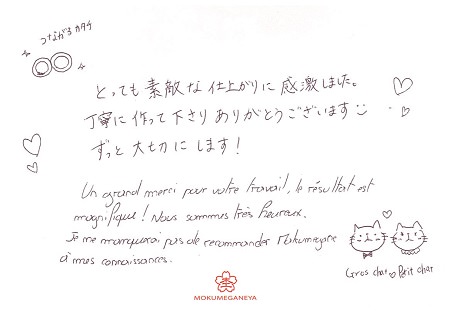 つながるカタチ
とっても素敵な仕上がりに感激しました。
丁寧に作って下さりありがとうございます
ずっと大切にします!
Un grand merci pour votre travail, le résultat est
magnifique! Nous sommes très heureux.
Je me manquerai pas de recommander Mokumegane
à mes connaissances.
Gros chat Petit chat
MOKUMEGANEYA